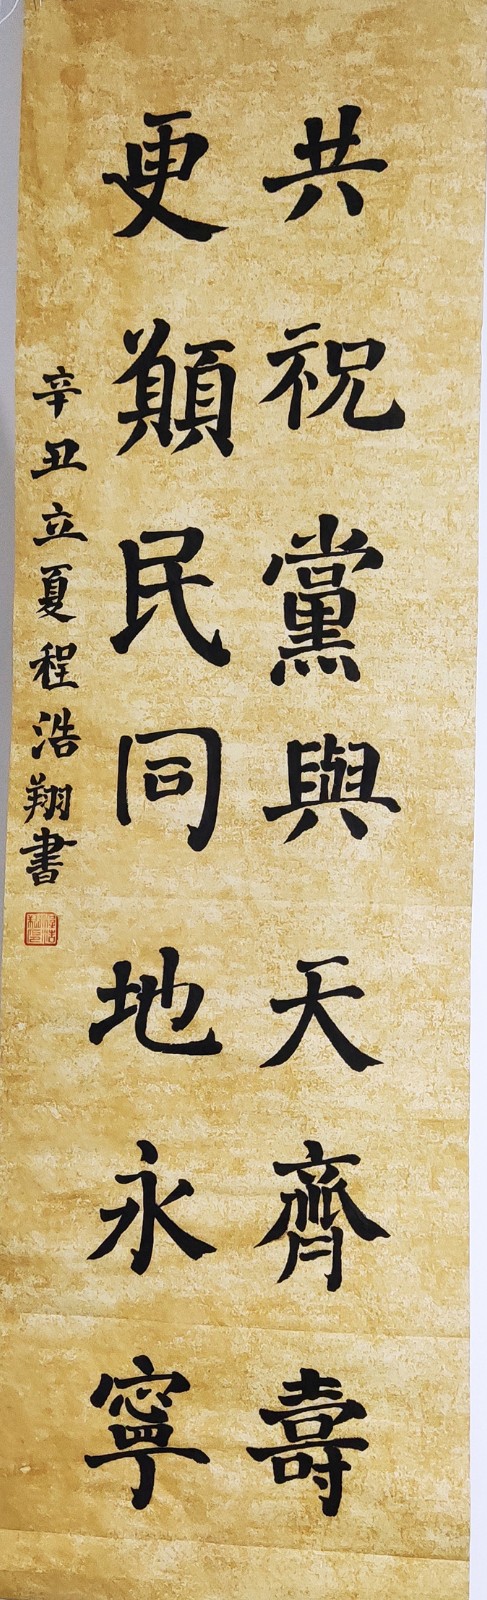 共祝黨與天齊壽
更願民同地永寧
辛丑立夏程浩翔書